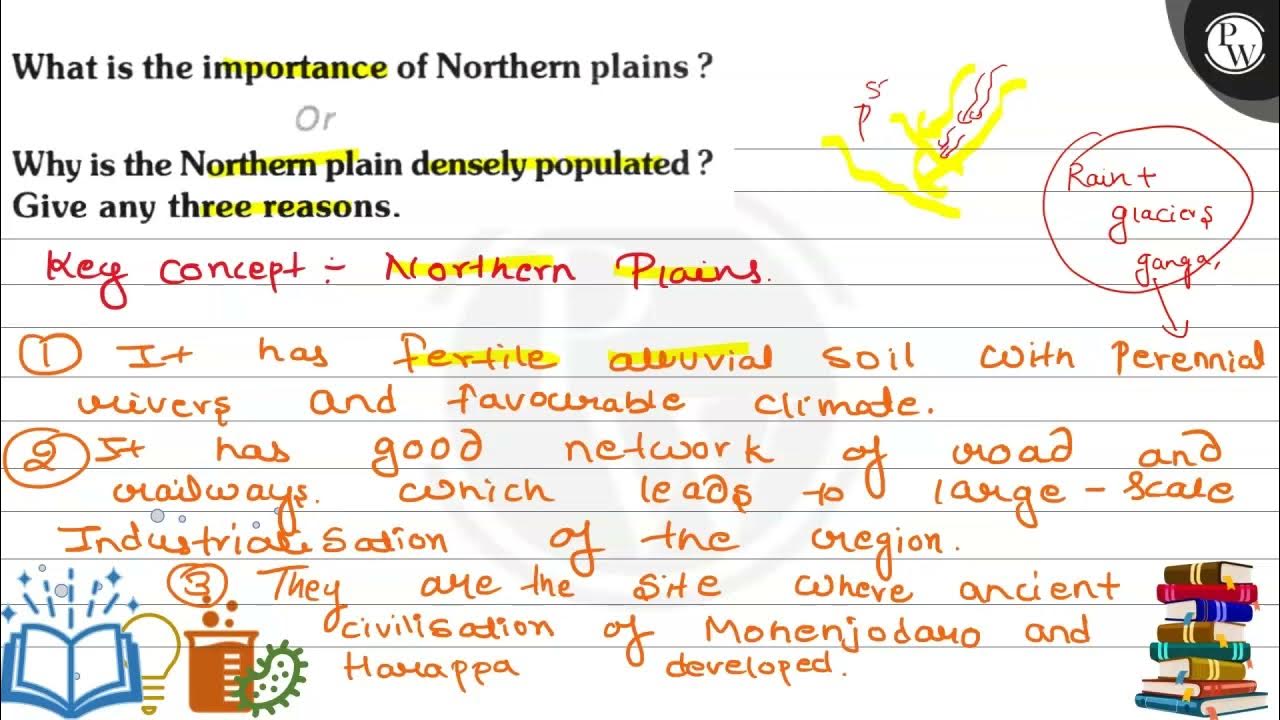 What is the importance of Northern plains ?
Or
Why is the Northern plain densely populated ?
Give any three reasons.
PW
S
P
Rain +
glaciers
ganga,
Key concept ÷ Northern Plains.
① It has fertile alluvial soil with Perennial
rivers and favourable climate.
② It has good network of road and
railways. which leads to large - scale
Industrialisation of the region.
③ They are the site where ancient
civilisation of Mohenjodaro and
Harappa developed.